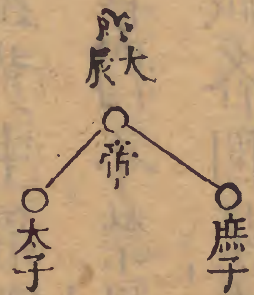 卽
大辰
帝
太子
庶子